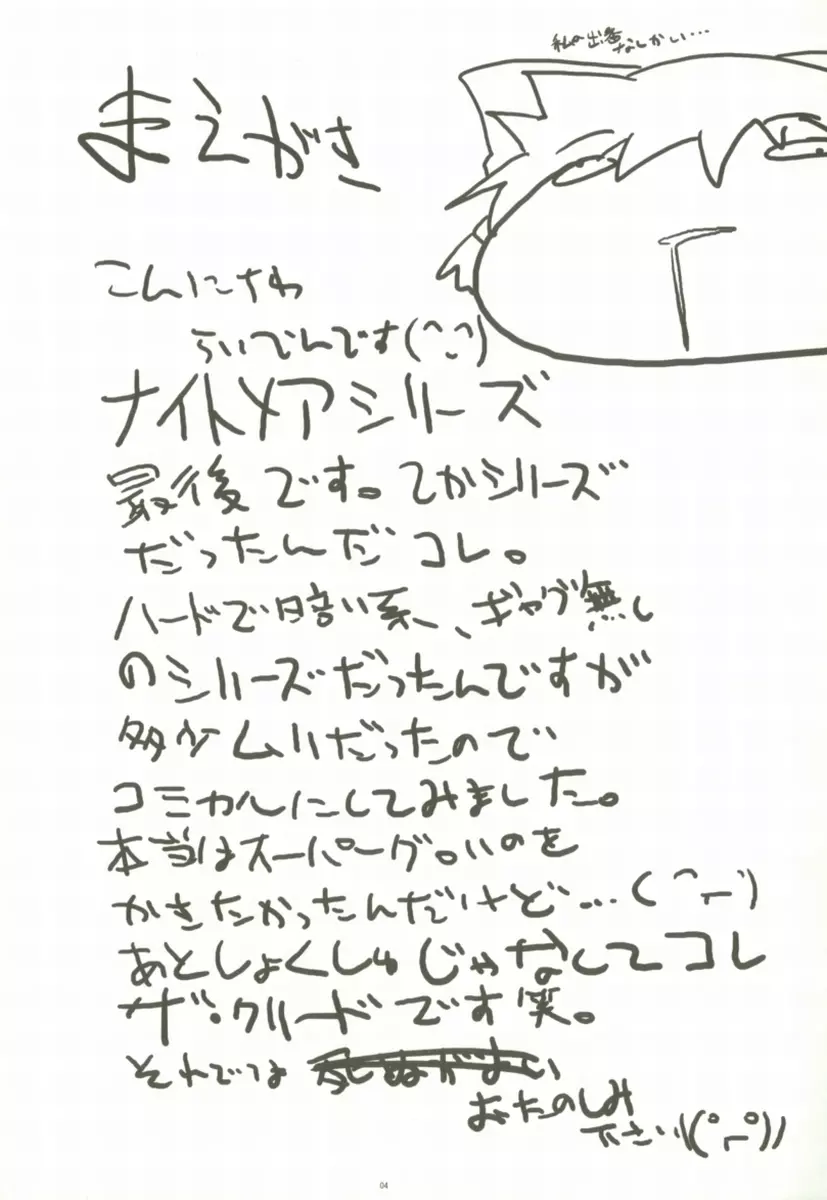 私の出番
なしかい…
まえがき
こんにちわ
らいでんです(^_^)
ナイトメアシリーズ
最後です。てかシリーズ
だったんだコレ。
ハードで暗い系、ギャグ無し
のシリーズだったんですが
多少ムリだったので
コミカルにしてみました。
本当はスーパーグロいのを
かきたかったんだけど…
あとしょくしゅじゃなくてコレ
ザ・クリードです笑。
それでは死ぬがよい
おたのしみ
下さい
04